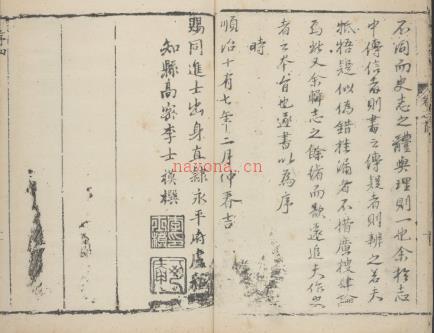 不同而史志之體與理則一也余於志
中傳信者則書之傳疑者則辨之若夫
牴牾疑似偽錯桂漏者不惜廣搜肆
為此又余輯志之餘緒而欲遠進夫作史
者之本旨也遂書以為序
時
順治十有七年二月仲春吉
賜同進士出身直隸永平府盧龍
知縣高密李士模撰
nayona.cn